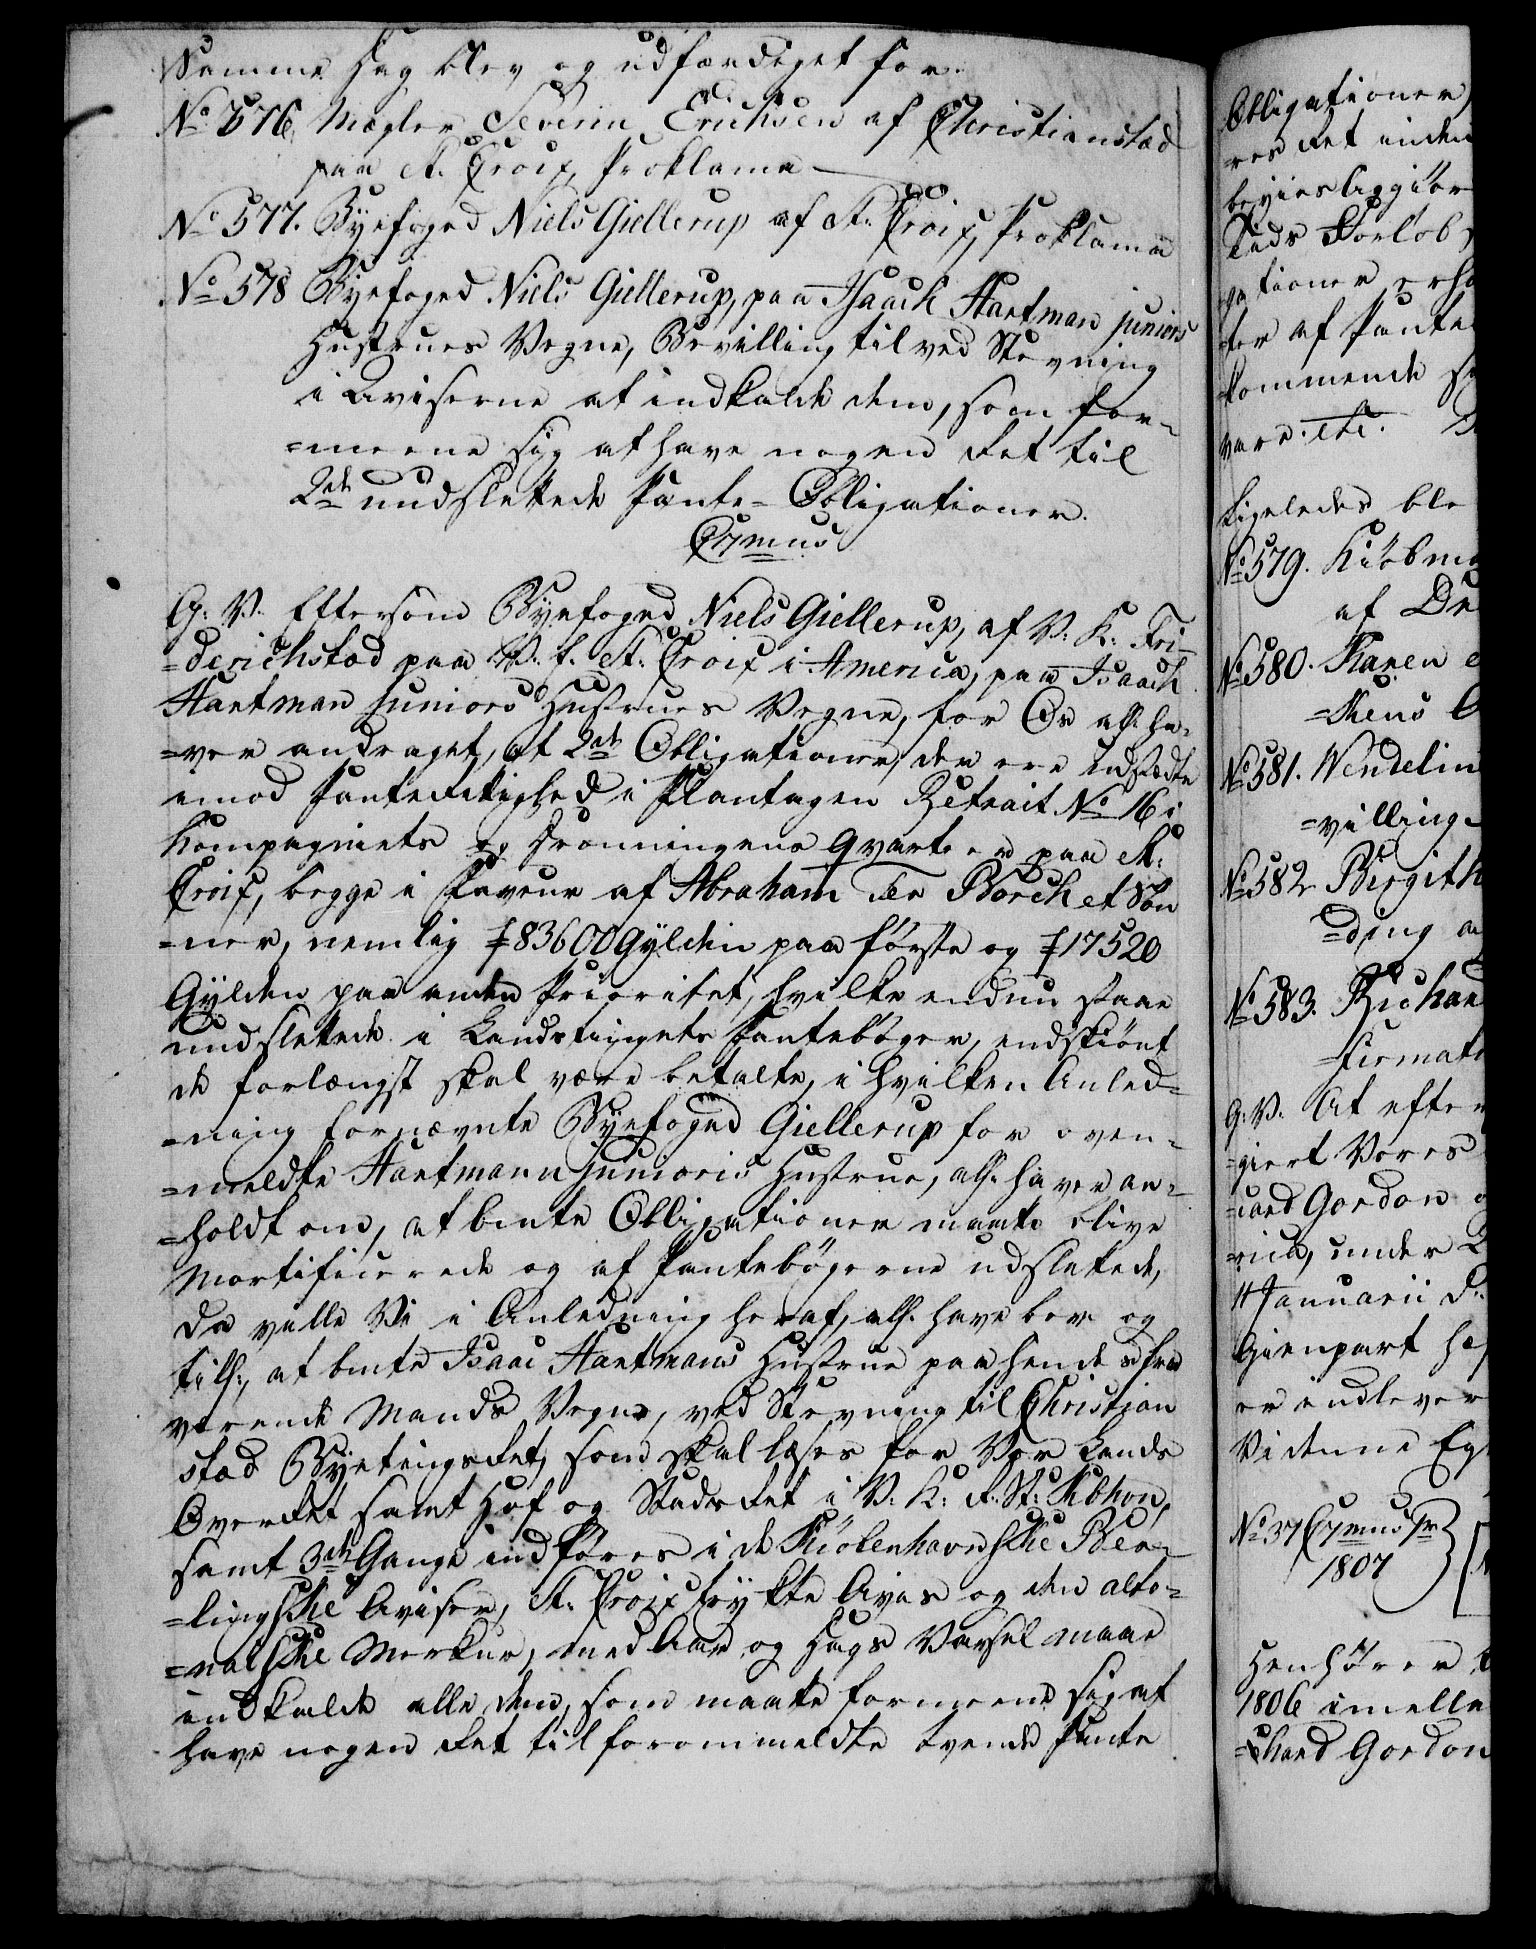 Samme Dag blev og udfærdiget for
No 576. Mægler Severin Erichsen af Christianstæd
paa St. Croix, Proklama
No 577. Byefoged Niels Giellerup af St. Croix, Proklama
No 578 Byefoged Niels Giellerup, paa Isaach Hartman juniors
Hustrues Vegne, Bevilling til ved Stevning
i Aviserne at indkalde dem, som for-
=meene sig at have nogen Ret til
2de uudslettede Pante-Obligationer.
G. V. Eftersom Byefoged Niels Giellerup, af V. K. Fri-
=derichstæd paa V. L. St. Croix i America, paa Isaach
Hartman juniors Hustrues Vegne, for Os allh. ha-
=ver andraget, at 2de Obligationer, der ere udstædte
imod Panterettighed i Plantagen Retrait No 16 i
Kompagniets og Dronningens Qvarteer paa St.
Croix, begge i Faveur af Abraham Ter Borch et Søn
=ner, nemlig f 83600 Gylden paa første og f 17520
Gylden paa anden Prioritet, hvilke endnu staae
uudslettede i Landstingets Pantebøger, endskiønt
de forlængst skal være betalte, i hvilken Anled-
=ning fornævnte Byefoged Giellerup for oven-
=meldte Hartmann junioris Hustrue, allh. haver an-
=holdt om, at bemte Obligationer maatte blive
Mortificerede og af Pantebøgerne udslettede,
Da ville Vi i Anledning heraf, allh. have bev. og
tillh., at bemte Isaac Hartmans Hustrue paa hendes fra
værende Mands Vegne, ved Stevning til Christian
stæd Byetingsret, som skal læses for Vor Lands
Overret samt Hof og Stadsret i V. K. R. St. Kbhvn,
samt 3de Gange indføres i de Kiøbenhavnsche Ber-
=lingsche Aviser, St. Croix trykte Avis og den alto-
=nalsche Merkur, med Aar og Dags Varsel maae
indkalde alle dem, som maatte formeene sig at
have nogen Ret til forommeldte tvende Pante
Obligationer,
=res Ret inden
Tids Forløb
=ter af Pante
=kommende
vare. etc.
Ligeledes ble
No 579. Kiøbma
af
No 580. Karen
No 581. Wendelin
=villing
No 582 Birgith
No 583. Richar
G. V. At efter
=giert Vores
=uard Gordon
=rica, under
11 Januarii
Gienpart
er indlever
Vi denne
1807
Henhører
1806 imelle
=chard Gordon